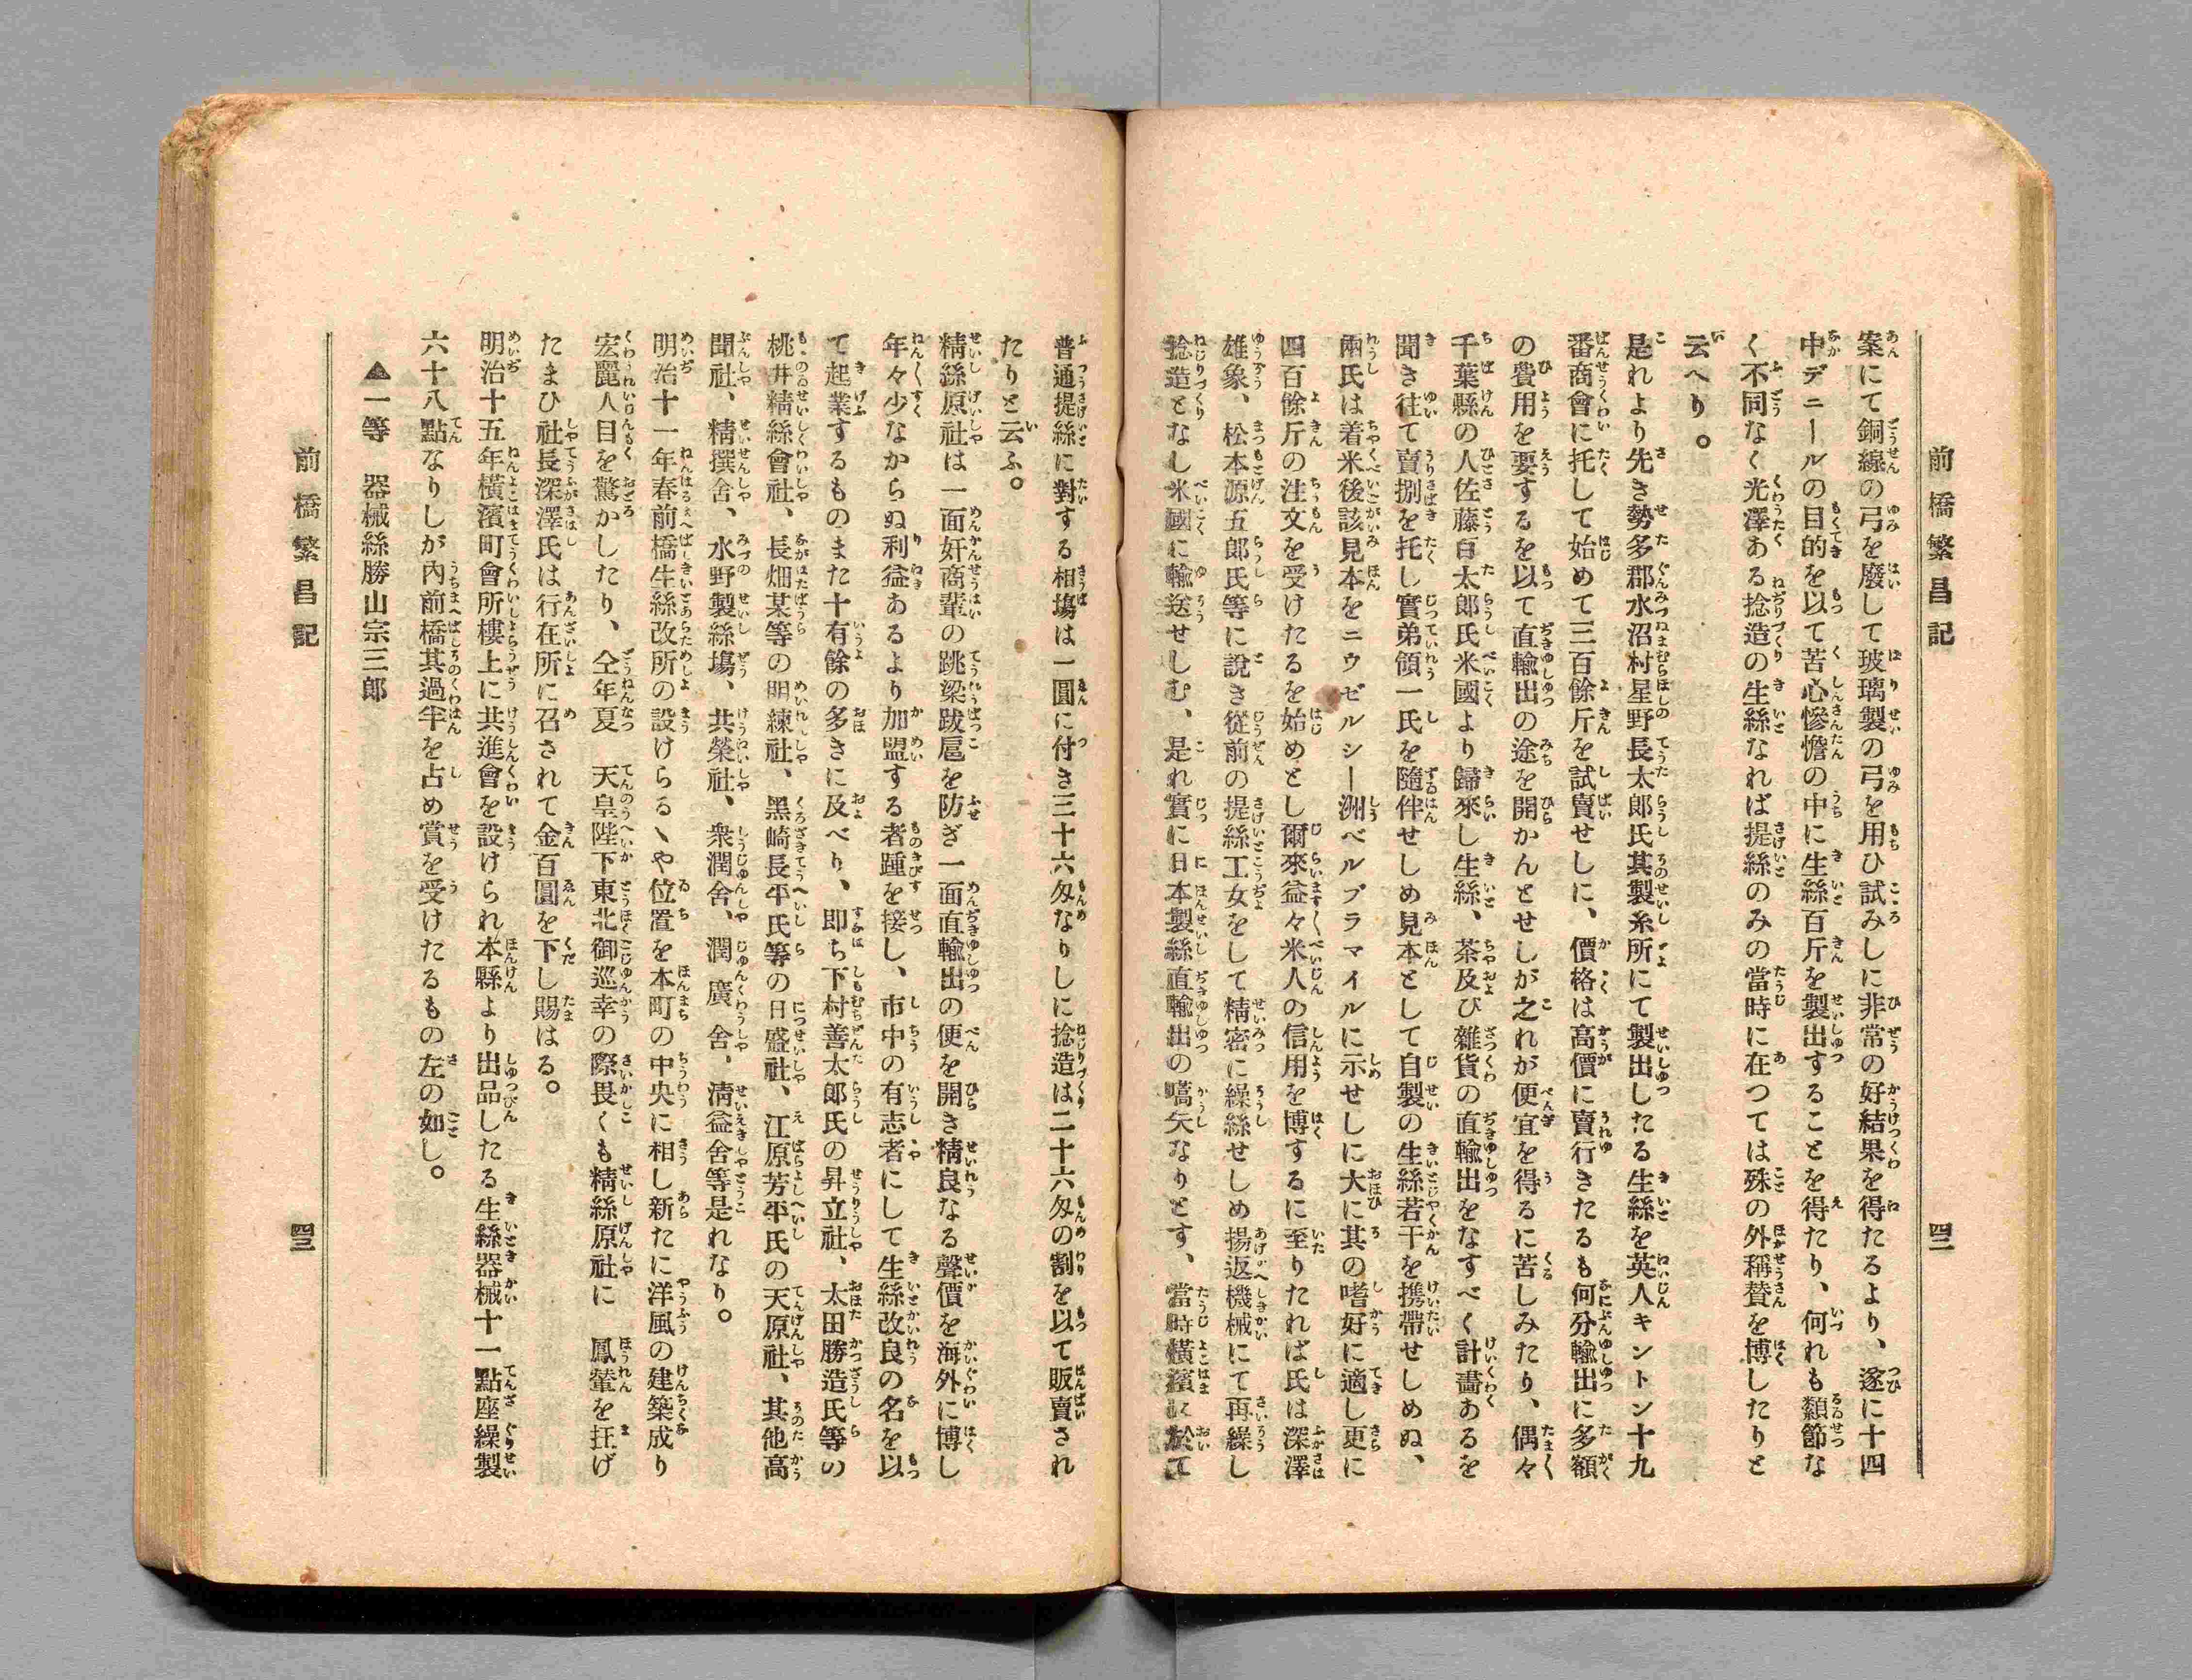 前橋繁昌記
四二
案にて銅線の弓を廢して玻璃製の弓を用ひ試みしに非常の好結果を得たるより、遂に十四
中デニールの目的を以て苦心慘憺の中に生絲百斤を製出することを得たり、何れも纇節な
く不同なく光澤ある捻造の生絲なれば提絲のみの當時に在つては殊の外稱賛を博したりと
云へり。
是れより先き勢多郡水沼村星野長太郎氏其製糸所にて製出したる生絲を英人キントン十九
番商會に托して始めて三百餘斤を試賣せしに、價格は高價に賣行きたるも何分輸出に多額
の費用を要するを以て直輸出の途を開かんとせしが之れが便宜を得るに苦しみたり、偶々
千葉縣の人佐藤百太郎氏米國より歸來し生絲、茶及び雜貨の直輸出をなすべく計畵あるを
聞き往て賣捌を托し實弟領一氏を隨伴せしめ見本として自製の生絲若干を携帶せしめぬ、
兩氏は着米後該見本をニウゼルシー洲ベルプラマイルに示せしに大に其の嗜好に適し更に
四百餘斤の注文を受けたるを始めとし爾來益々米人の信用を博するに至りたれば氏は深澤
雄象、松本源五郎氏等に說き從前の提絲工女をして精密に繰絲せしめ揚返機械にて再繰し
捻造となし米國に輸送せしむ、是れ實に日本製絲直輸出の嚆矢なりとす、當時橫濱に於て
普通提絲に對する相塲は一圓に付き三十六匁なりしに捻造は二十六匁の割を以て販賣され
たりと云ふ。
精絲原社は一面奸商輩の跳梁跋扈を防ぎ一面直輸出の便を開き精良なる聲價を海外に博し
年々少なからぬ利益あるより加盟する者踵を接し、市中の有志者にして生絲改良の名を以
て起業するものまた十有餘の多きに及べり、即ち下村善太郎氏の昇立社、太田勝造氏等の
桃井精絲會社、長畑某等の明練社、黑崎長平氏等の日盛社、江原芳平氏の天原社、其他高
聞社、精撰舍、水野製絲塲、共榮社、衆潤舍、潤廣舍、淸益舍等是れなり。
明治十一年春前橋生絲改所の設けらるヽや位置を本町の中央に相し新たに洋風の建築成り
宏麗人目を驚かしたり、仝年夏　天皇陛下東北御巡幸の際畏くも精絲原社に　鳳輦を抂げ
たまひ社長深澤氏は行在所に召されて金百圓を下し賜はる。
明治十五年橫濱町會所樓上に共進會を設けられ本縣より出品したる生絲器械十一點座繰製
六十八點なりしが內前橋其過半を占め賞を受けたるもの左の如し。
▲一等　器械絲勝山宗三郎
前橋繁昌記
四三